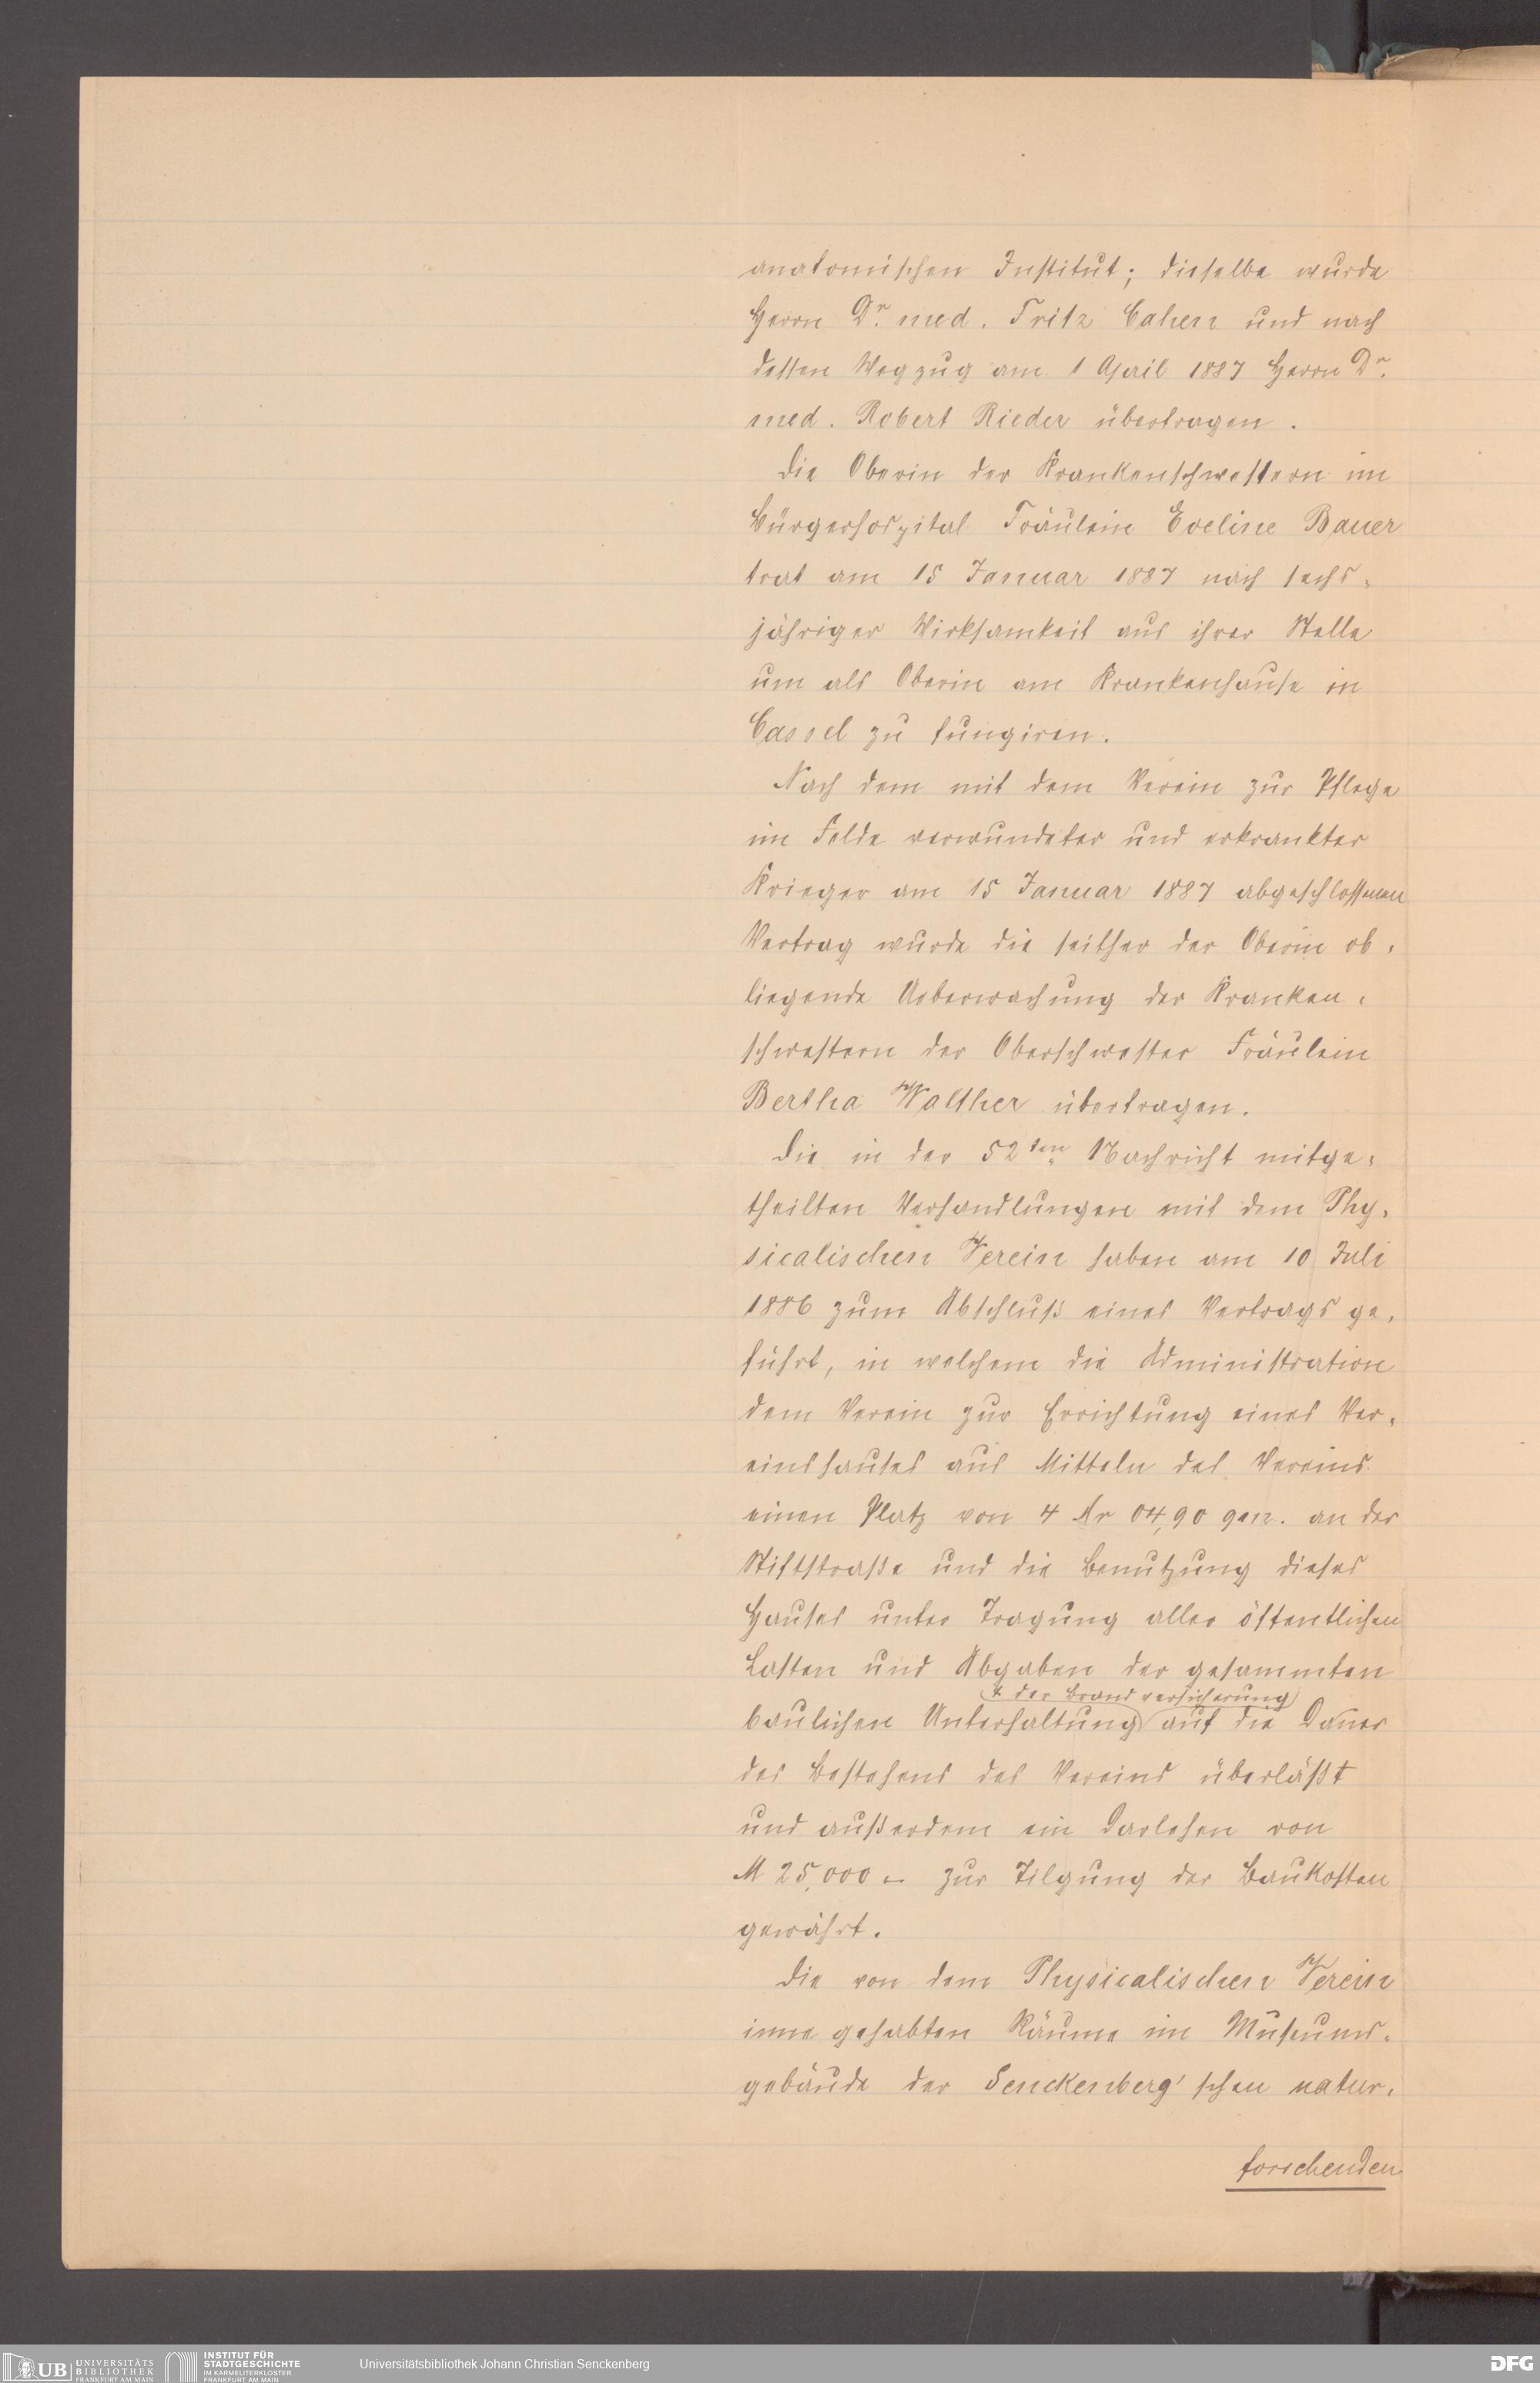 anatomischen Institut; dieselbe wurde
Herrn Dr. med. Fritz Cahen und nach
dessen Wegzug am 1 April 1887 Herrn Dr.
med. Robert Rieder übertragen.
Die Oberin der Krankenschwestern im
Bürgerhospital Fräulein Eveline Bauer
trat am 15 Januar 1887 nach sechs-
jähriger Wirksamkeit aus ihrer Stelle
um als Oberin am Krankenhause in
Cassel zu fungiren.
Nach dem mit dem Verein zur Pflege
im Felde verwundeter und erkrankter
Krieger am 15 Januar 1887 abgeschlossenen
Vertrag wurde die seither der Oberin ob-
liegende Ueberwachung der Kranken-
schwestern der Oberschwester Fräulein
Bertha Walther übertragen.
Die in der 52ten Nachricht mitge-
theilten Verhandlungen mit dem Phy-
sicalischen Verein haben am 10 Juli
1886 zum Abschluß eines Vertrags ge-
führt, in welchem die Administration
dem Verein zur Errichtung eines Ver-
einshauses aus Mitteln des Vereins
einen Platz von 4 Ar 04,90 qm. an der
Stiftstraße und die Benutzung dieses
Hauses unter Tragung aller öffentlichen
Lasten und Abgaben der gesammten
& der Brandversicherung
baulichen Unterhaltung auf die Dauer
des Bestehens des Vereins überläßt
und außerdem ein Darlehen von
M 25,000 – zur Tilgung der Baukosten
gewährt.
Die von dem Physicalischen Verein
inne gehabten Räume im Museums-
gebäude der Senckenberg'schen natur-
forschenden
UB UNIVERSITÄTS
BIBLIOTHEK
FRANKFURT AM MAIN
INSTITUT FÜR
STADTGESCHICHTE
IM KARMELITERKLOSTER
FRANKFURT AM MAIN
Universitätsbibliothek Johann Christian Senckenberg
DFG